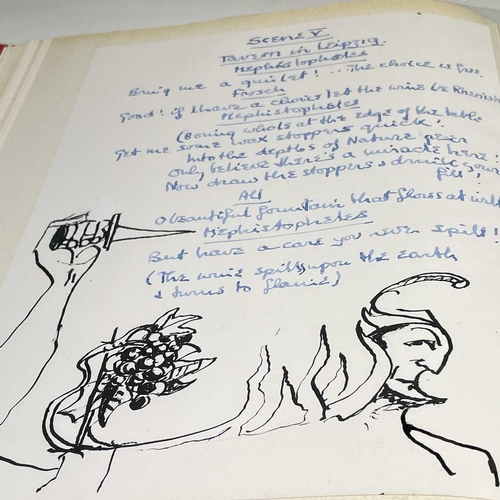 Scene V
Tavern in Leipzig.
Mephistopheles
Bring me a gimlet! ... The choice is free.
Frosch
Good! if I have a choice let the wine be Rhenish
Mephistopheles
(Boring whols at the edge of the table
Get me some wax stoppers quick!
Into the depths of Nature peer
Only believe there's a miracle here!
Now draw the stoppers & drink your
fill
All
O beautiful fountain that flows at will
Mephistopheles
But have a care you never spill!
(The wine spills upon the earth
& turns to flame)